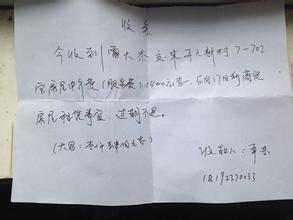 收条
今收到雷大杰交来开元新村7-702
室房屋中介费(服务费)1400元整.5月17日前商定
房屋租赁事宜,过期不退.
(大写:壹仟肆佰元整)
收款人:
18192370033